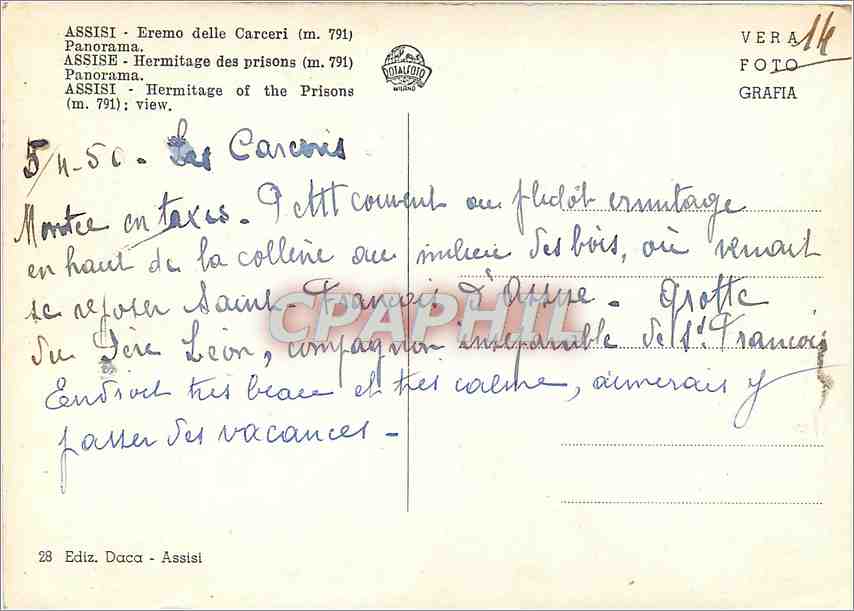 ASSISI - Eremo delle Carceri (m. 791)
Panorama.
ASSISE - Hermitage des prisons (m. 791)
Panorama.
ASSISI - Hermitage of the Prisons
(m. 791); view.
TOTALFOTO
MILANO
VERA
FOTO
GRAFIA
14
5/4-56 - Les Carceris
Montée en taxis. Petit couvent ou plutôt ermitage
en haut de la colline au milieu des bois, où venait
se reposer Saint-François d'Assise - grotte
du Père Léon, compagnon inséparable de St. François
Endroit très beau et très calme, aimerais y
passer des vacances -
CPAPHIL
28 Ediz. Daca - Assisi